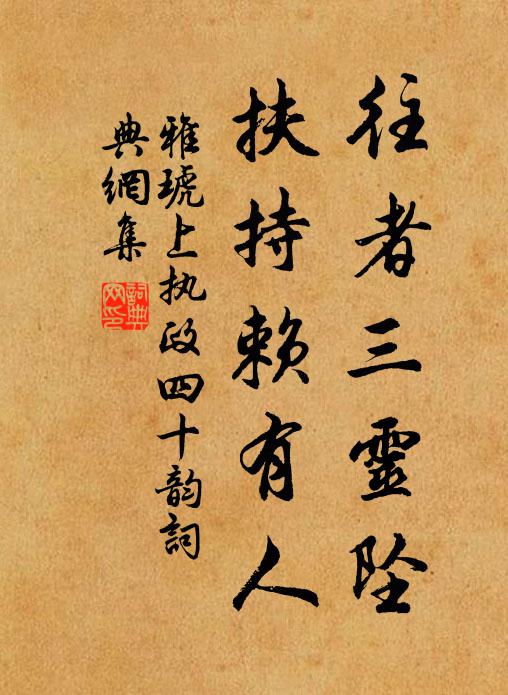 往者三靈坠
扶持赖有人
雅琥上执政四十韵詞
典網集
詞典网印